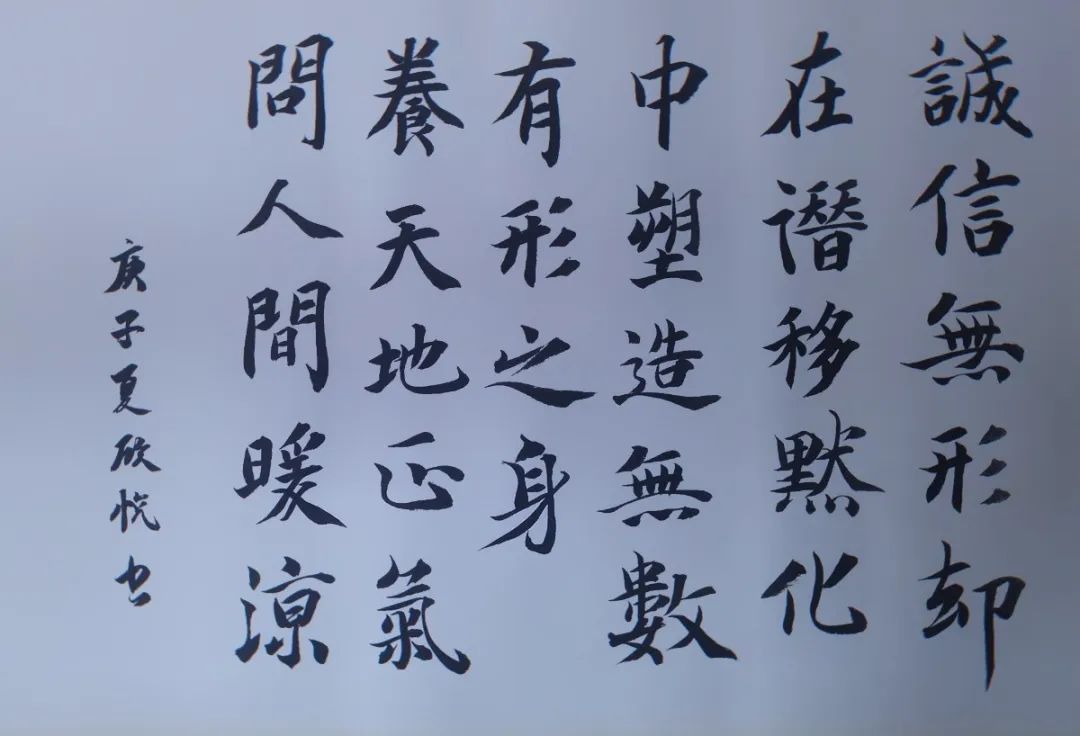 誠信無形却
在譖移默化
中塑造無數
有形之身
養天地正氣
問人間暖涼
庚子夏欣悦书